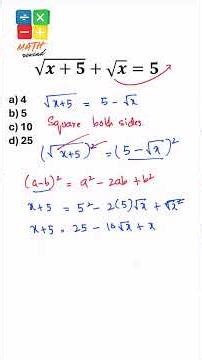 MATH
rewind
√x + 5 + √x = 5
a) 4
b) 5
c) 10
d) 25
√x+5 = 5 - √x
Square both sides
(√x+5)² = (5 - √x)²
(a-b)² = a² - 2ab + b²
x+5 = 5² - 2(5)√x + √x²
x+5 = 25 - 10√x + x